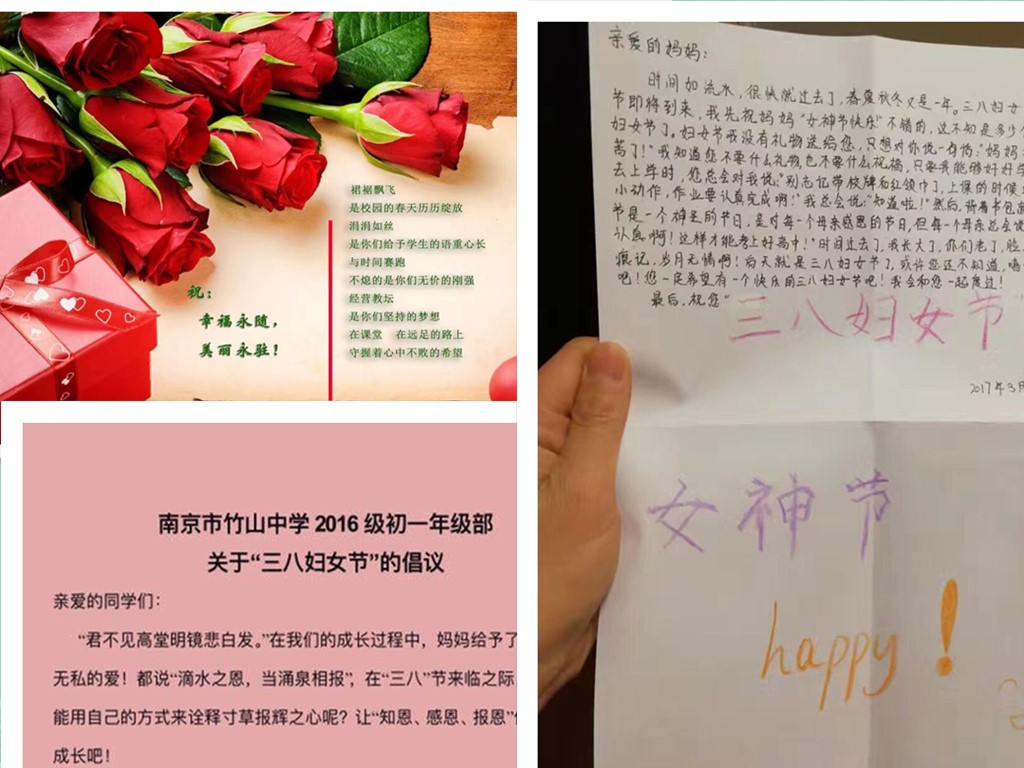 裙裾飘飞
是校园的春天历历绽放
涓涓如丝
是你们给予学生的语重心长
与时间赛跑
不熄的是你们无价的刚强
经营教坛
是你们坚持的梦想
在课堂 在远足的路上
守握着心中不败的希望
祝：
幸福永随，
美丽永驻！
南京市竹山中学 2016 级初一年级部
关于“三八妇女节”的倡议
亲爱的同学们：
“君不见高堂明镜悲白发。”在我们的成长过程中，妈妈给予了
无私的爱！都说“滴水之恩，当涌泉相报”，在“三八”节来临之际，
能用自己的方式来诠释寸草报辉之心呢？让“知恩、感恩、报恩”
成长吧！
亲爱的妈妈：
时间如流水，很快就过去了，春夏秋冬又是一年。三八妇女
节即将到来，我先祝妈妈“女神节快乐”不错的，这不知是多少
妇女节了。妇女节我没有礼物送给您，只想对你说一声悄："妈妈
苦了！"我知道您不要什么礼物也不要什么祝福，只要我能够好好学
去上学时，您总会对我说："别忘记带校牌和红领巾，上课的时候
小动作，作业要认真完成啊！"我总会说："知道啦！"然后，背着书包
节是一个神圣的节日，是对每一个母亲感恩的节日，但每一个母亲总会
认真啊！这样才能考上好高中！"时间过去了，我长大了，你们老了，脸
痕记，岁月无情啊！后天就是三八妇女节了，或许您还不知道，
吧！您一定希望有一个快乐的三八妇女节吧！我会和您一起度过！
最后，祝您“
三八妇女节
2017年3月
女神节
happy！